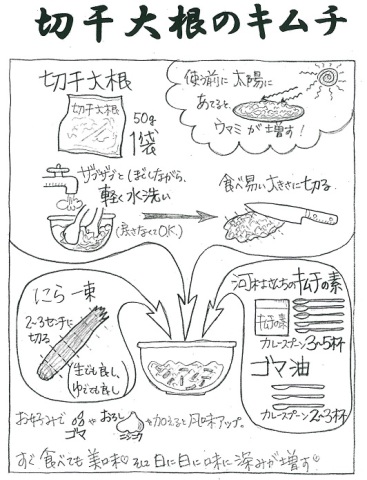 切干大根のキムチ
切干大根
切干大根
50g
1袋
使う前に太陽に
あてると、
ウマミが増す!
ザブザブとほぐしながら、
軽く水洗い
(戻さなくてOK.)
食べ易い大きさに切る
にら一束
2~3センチに
切る
生でも良し、
ゆでても良し
キムチの素
キムチの素
カレースプーン3~5杯
ゴマ油
カレースプーン2~3杯
お好みで ゴマ や おろし を加えると風味アップ。
すぐ食べても美味 そして日に日に味に深みが増す